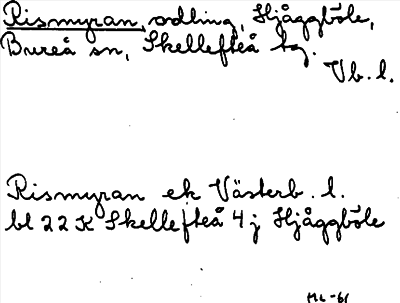 Rismyran, odling, Hjåggböle,
Bureå sn, Skellefteå tg.
Vb. l.
Rismyran ek Västerb. l.
bl 22 K Skellefteå 4 j Hjåggböle
HL -61